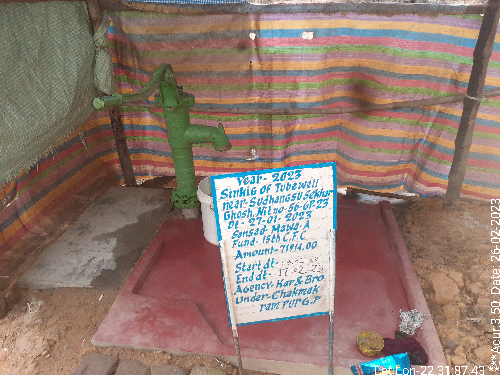 Year- 2023
Sinkig of Tubewell
near-Sudhangsu Sekhar
Ghosh. Nit no-56-GP-23
Dt- 27-01-2023
Sansad- Mawa-A
Fund- 15th C.F.C
Amount-71914.00
Start dt-
End dt- 17.02.23
Agency-Kar & Bro
Under-Chakmak
rampur G.P
Lat Lon-22.31.87.43
***Acur:3.50 Date: 26-02-2023